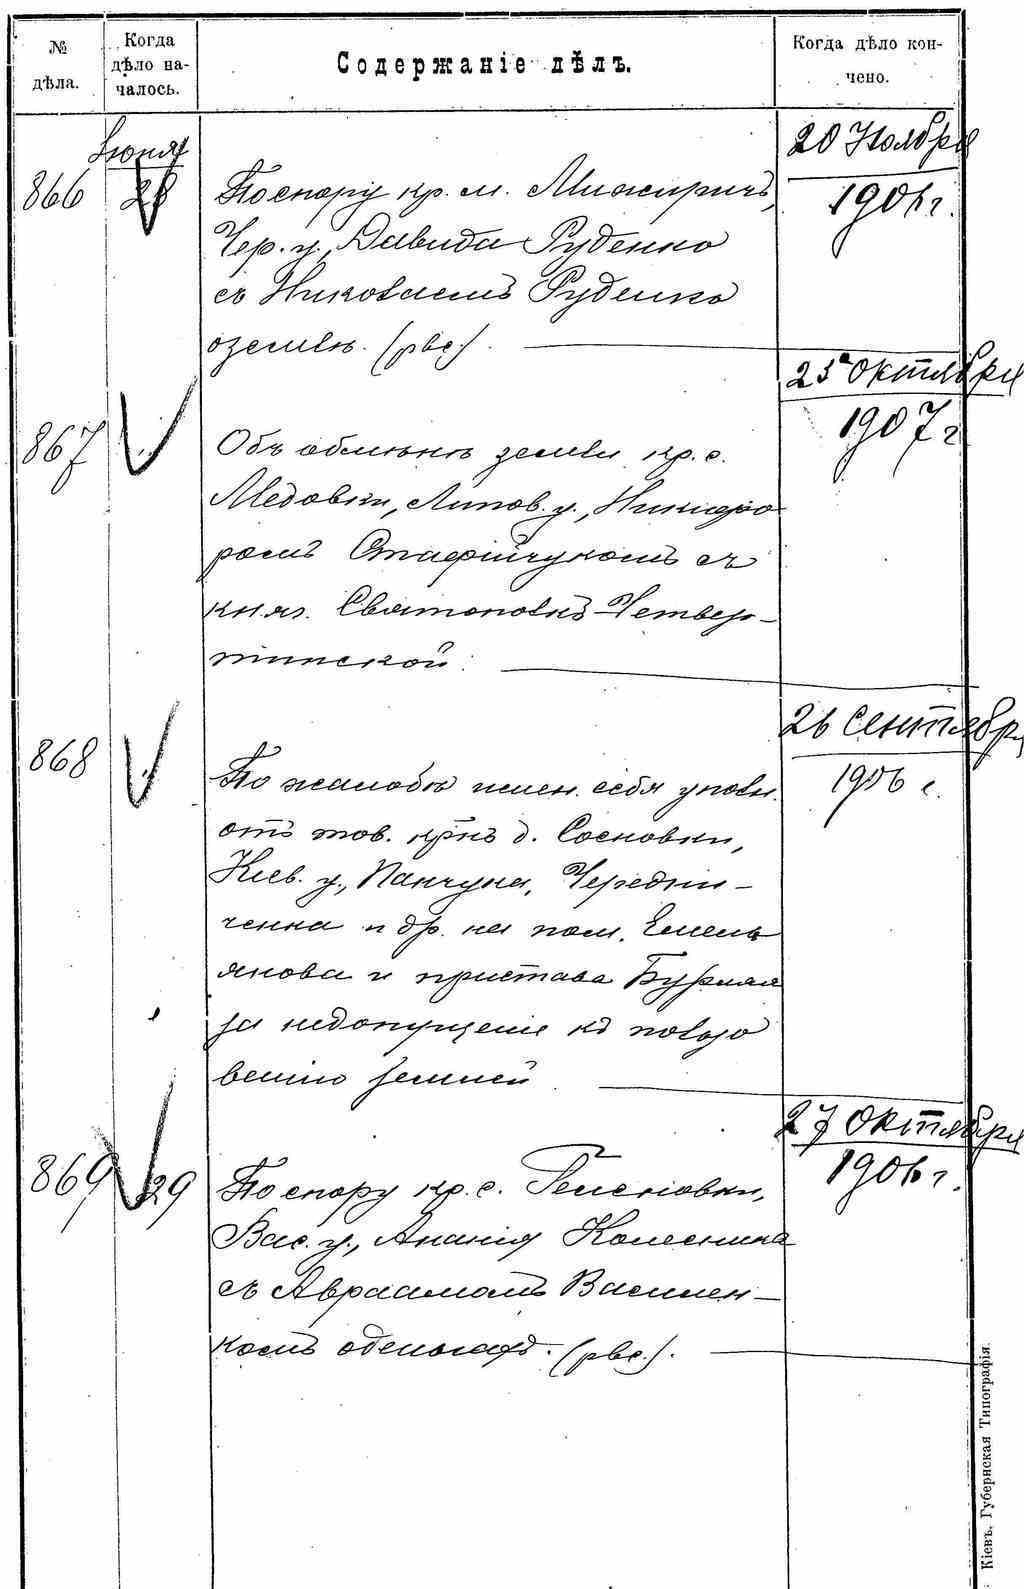 № дѣла.
Когда дѣло на-
чалось.
Содержаніе дѣлъ.
Когда дѣло кон-
чено.
Іюня
866
28
По спору кр. м. Межиричъ,
Чер. у., Давида Руденко
съ Николаемъ Руденко
о земле. (рвс.).
20 Ноября
1906 г.
867
Объ обмѣнѣ земли кр. с.
Медовки, Липов. у., Никифо
ромъ Стафійчукомъ съ
княг. Святополкъ-Четвер-
тинской.
25 Октября
1907 г
868
По жалобѣ имен. себя упол.
отъ тов. кр-нъ д. Сосновки,
Кіев. у., Панчука, Чередни-
ченка и др. на пом. Емель
янова и пристава
за недопущеніе къ пользо
ванію землей
26 Сентября
1906 г.
869
29
По спору кр. с.
Вас. у., Ананія Колесника
съ Авраамомъ Василен-
комъ о деньгахъ. (рвс.).
27 Октября
1906 г.
Кіевъ. Губернская Типографія.